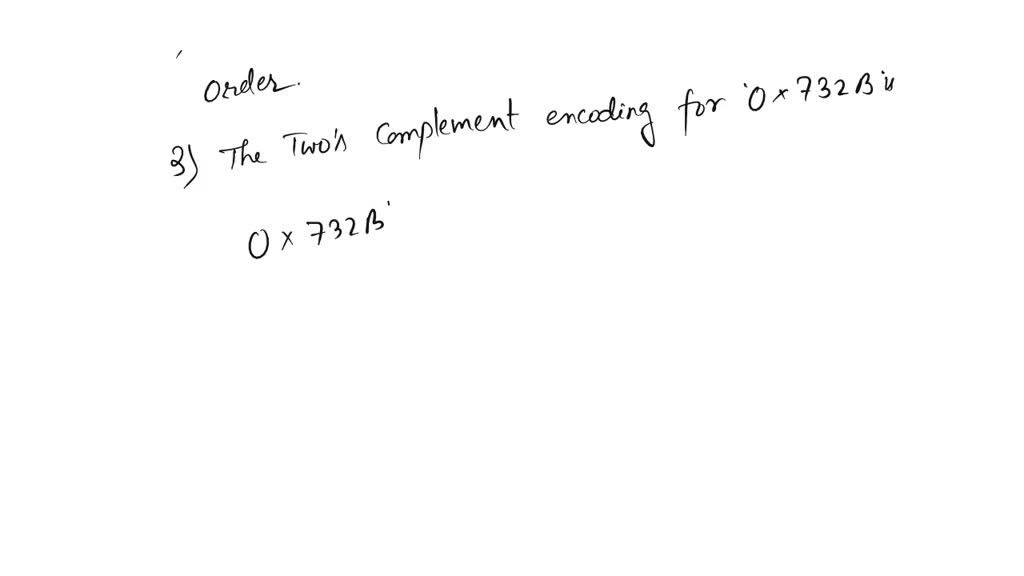 order.
3) The Two's Complement encoding for '0x732B' is
0x732B'